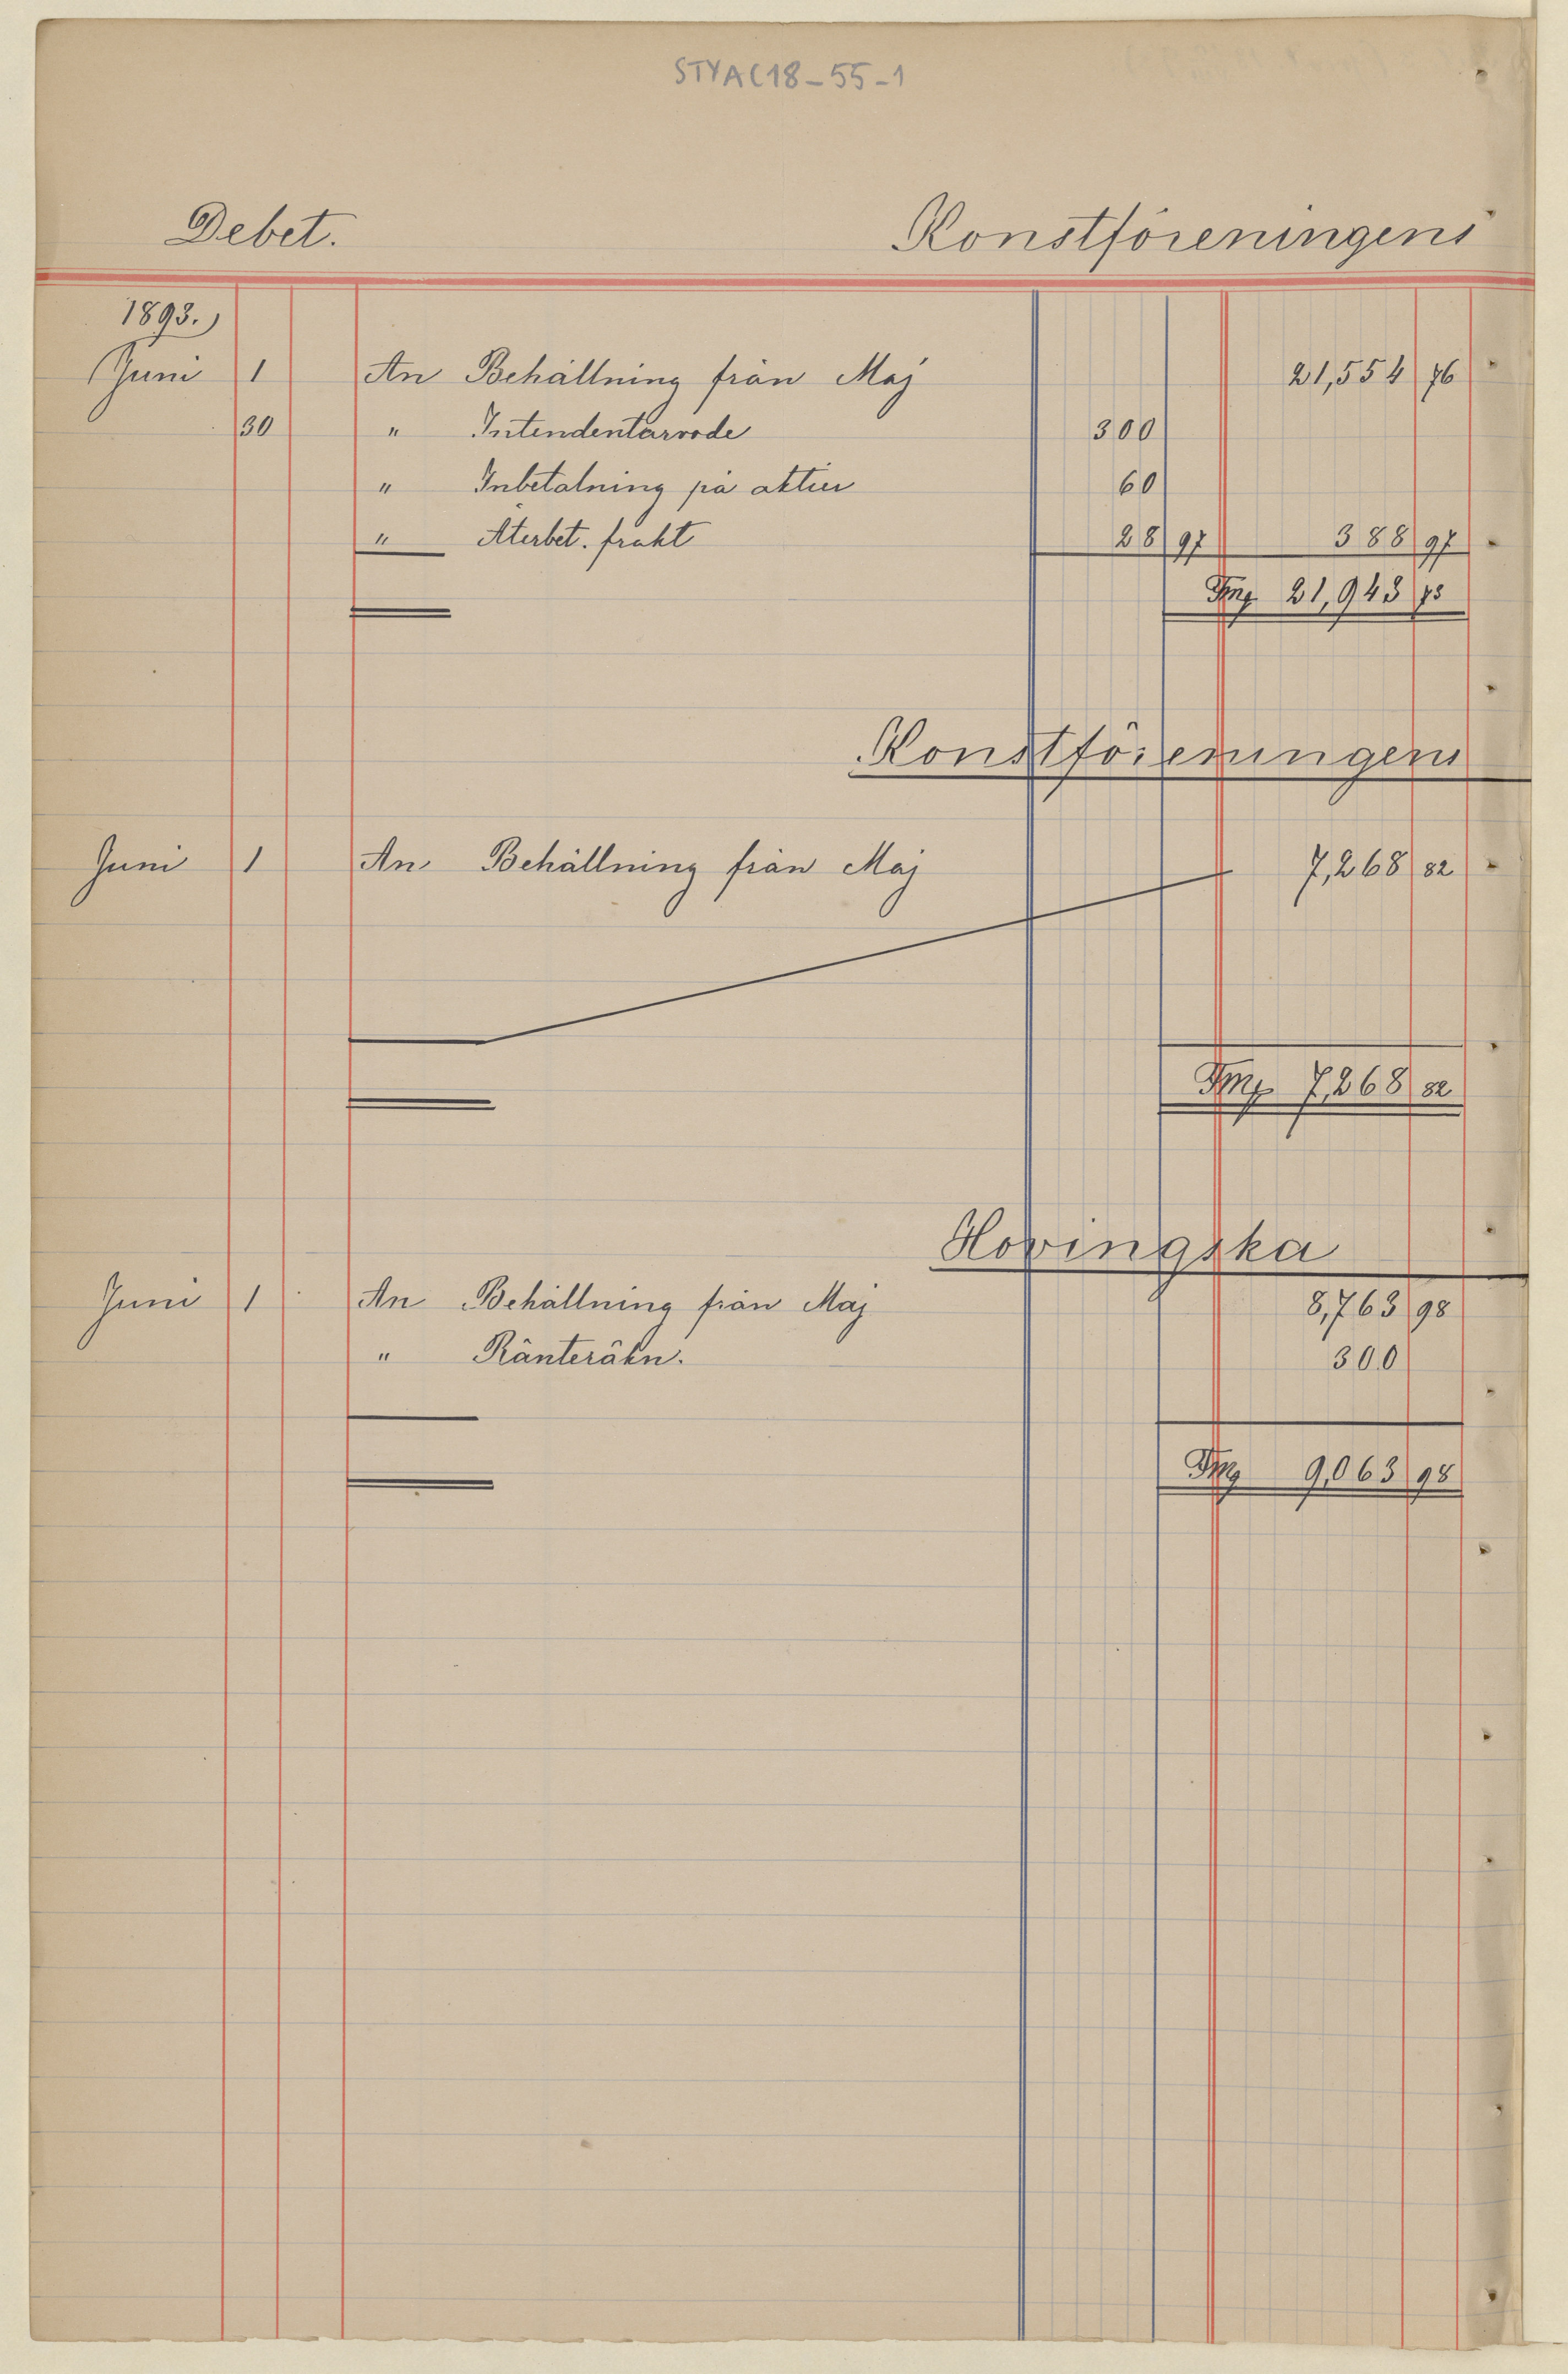 STYA C18-55-1
Debet. Konstföreningens
1893.
Juni 1 An Behållning från Maj 21,554 76
30 " Intendentarvode 300
" Inbetalning på aktier 60
" Återbet. frakt 28 97 388 97
Fmg 21,943 73
Konstföreningens
Juni 1 An Behållning från Maj 7,268 82
Fmg 7,268 82
Hovingska
Juni 1 An Behållning från Maj 8,763 98
" Ränteräkn. 300
Fmg 9,063 98